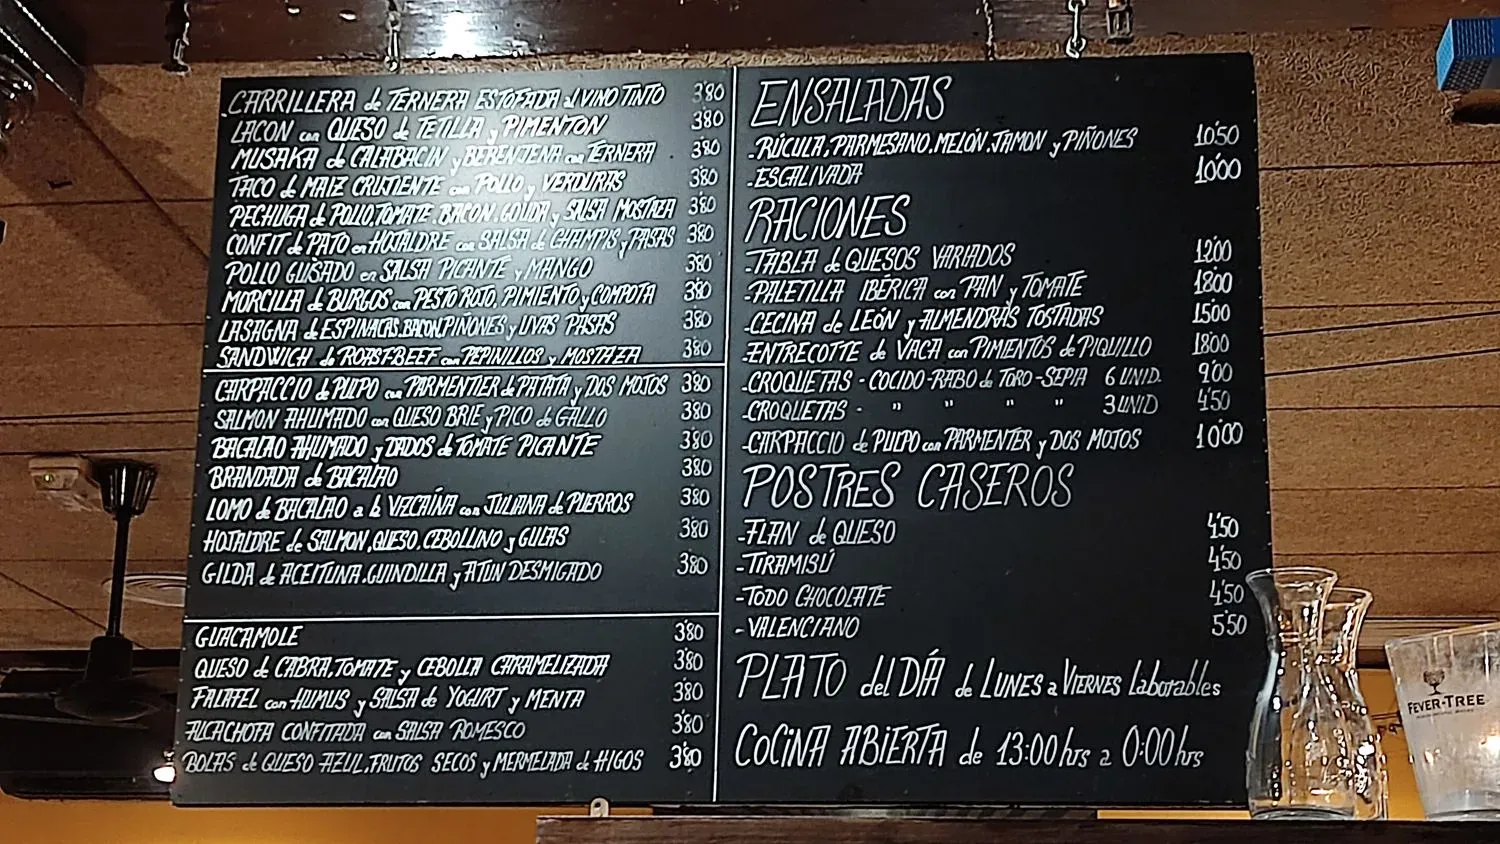 CARRILLERA de TERNERA ESTOFADA al VINO TINTO 3'80
LACON con QUESO de TETILLA y PIMENTON 3'80
MUSAKA de CALABACIN y BERENJENA con TERNERA 3'80
TACO de MAIZ CRUJIENTE con POLLO y VERDURAS 3'80
PECHUGA de POLLO, TOMATE, BACON, GOUDA y SALSA MOSTAZA 3'80
CONFIT de PATO en HOJALDRE con SALSA de CHAMPIS y PASAS 3'80
POLLO GUISADO en SALSA PICANTE y MANGO 3'80
MORCILLA de BURGOS con PESTO ROJO, PIMIENTO y COMPOTA 3'80
LASAGNA de ESPINACAS, BACON, PIÑONES y UVAS PASAS 3'80
SANDWICH de ROAST-BEEF con PEPINILLOS y MOSTAZA 3'80
CARPACCIO de PULPO con PARMENTIER de PATATA y DOS MOJOS 3'80
SALMON AHUMADO con QUESO BRIE y PICO de GALLO 3'80
BACALAO AHUMADO y DADOS de TOMATE PICANTE 3'80
BRANDADA de BACALAO 3'80
LOMO de BACALAO a la VIZCAÍNA con JULIANA de PUERROS 3'80
HOJALDRE de SALMON, QUESO, CEBOLLINO y GULAS 3'80
GILDA de ACEITUNA, GUINDILLA y ATUN DESMIGADO 3'80
GUACAMOLE 3'80
QUESO de CABRA, TOMATE y CEBOLLA CARAMELIZADA 3'80
FALAFEL con HUMUS y SALSA de YOGURT y MENTA 3'80
ALCACHOFA CONFITADA con SALSA ROMESCO 3'80
BOLAS de QUESO AZUL, FRUTOS SECOS y MERMELADA de HIGOS 3'80
ENSALADAS
-RÚCULA, PARMESANO, MELÓN, JAMON y PIÑONES 10'50
-ESCALIVADA 10'00
RACIONES
-TABLA de QUESOS VARIADOS 12'00
-PALETILLA IBÉRICA con PAN y TOMATE 18'00
-CECINA de LEÓN y ALMENDRAS TOSTADAS 15'00
-ENTRECOTTE de VACA con PIMIENTOS de PIQUILLO 18'00
-CROQUETAS - COCIDO-RABO de TORO-SEPIA 6 UNID. 9'00
-CROQUETAS - " " " " 3 UNID 4'50
-CARPACCIO de PULPO con PARMENTER y DOS MOJOS 10'00
POSTRES CASEROS
-FLAN de QUESO 4'50
-TIRAMISÚ 4'50
-TODO CHOCOLATE 4'50
-VALENCIANO 5'50
PLATO del DÍA de LUNES a VIERNES Laborables
COCINA ABIERTA de 13:00 hrs a 0:00 hrs
FEVER-TREE